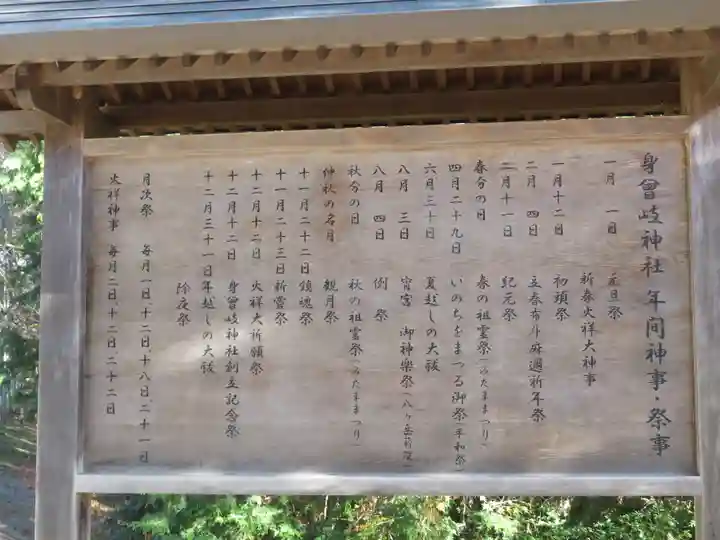 身曾岐神社 年間神事・祭事
一月 一日 元旦祭
新春火祥大神事
一月十二日 初頭祭
二月 四日 立春斎斗麻邇祈年祭
二月十一日 紀元祭
春分の日 春の祖霊祭(みたままつり)
四月二十九日 いのちをまつる御祭(平和祭)
六月三十日 夏越しの大祓
八月 三日 宵宮 御神楽祭(八ヶ岳薪能)
八月 四日 例祭
秋分の日 秋の祖霊祭(みたままつり)
仲秋の名月 観月祭
十一月二十二日 鎮魂祭
十一月二十三日 新嘗祭
十二月十二日 火祥大祈願祭
十二月十二日 身曾岐神社創立記念祭
十二月三十一日 年越しの大祓
除夜祭
月次祭 毎月一日、十二日、十八日、二十一日
火祥神事 毎月二日、十二日、二十二日